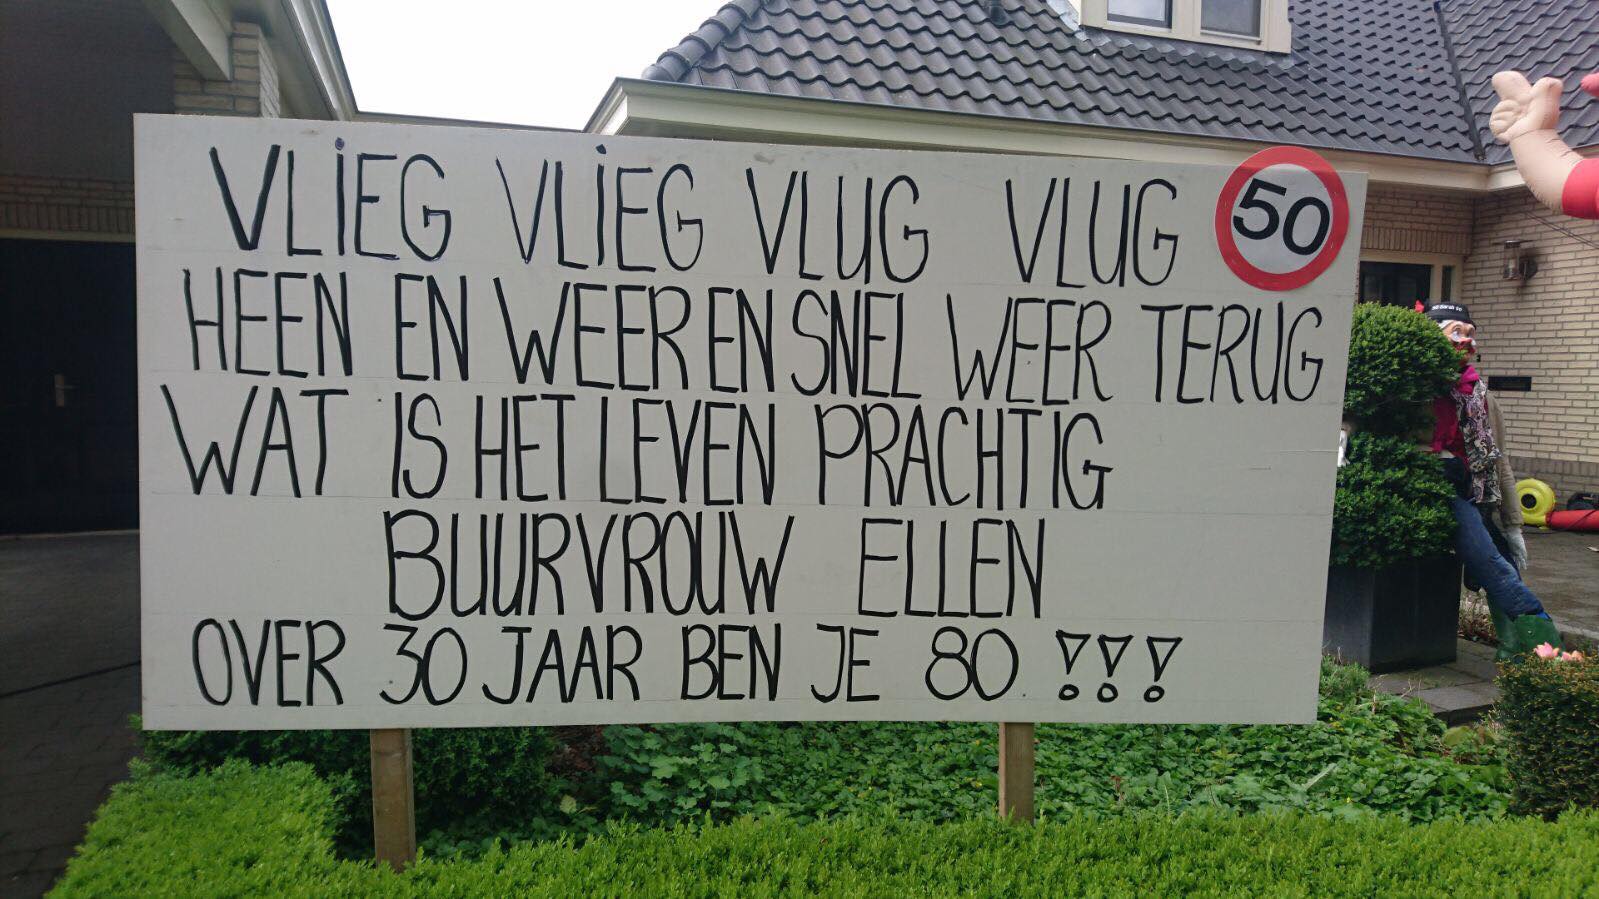 VLIEG VLIEG VLUG VLUG 50
HEEN EN WEER EN SNEL WEER TERUG
WAT IS HET LEVEN PRACHTIG
BUURVROUW ELLEN
OVER 30 JAAR BEN JE 80 !!!